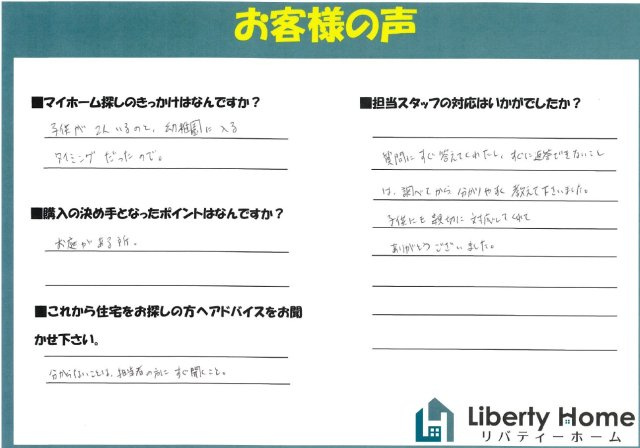 お客様の声
■マイホーム探しのきっかけはなんですか？
子供が2人いるのと、幼稚園に入る
タイミングだったので。
■購入の決め手となったポイントはなんですか？
お庭がある所。
■これから住宅をお探しの方へアドバイスをお聞
かせ下さい。
分からないことは、担当者の方にすぐ聞くこと。
■担当スタッフの対応はいかがでしたか？
質問にすぐ答えてくれたし、すぐに返答できないこと
は、調べてから分かりやすく教えて下さいました。
子供にも親切に対応してくれて
ありがとうございました。
Liberty Home
リバティーホーム